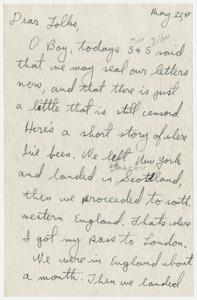 May 21st
Dear Folks,
O Boy, todays S & S said
that we may seal our letters
now, and that there is just
a little that is still censord
Here's a short story of where
I've been. We left New York
and landed in Scotland,
then we proceeded to south
western England. Thats where
I got my pass to London.
We were in England about
a month. Then we landed